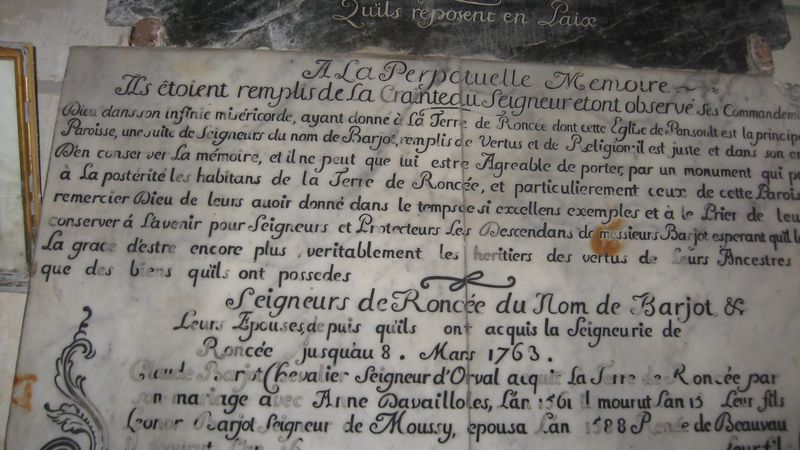 Qu'ils reposent en Paix
A La Perpetuelle Memoire
Ils étoient remplis de La Crainte du Seigneur et ont observé ses Commandem
Dieu dans son infinie miséricorde, ayant donné à La Terre de Roncée dont cette Eglise de Pansoult est la princip
Paroisse, une suite de Seigneurs du nom de Barjot, remplis de Vertus et de Religion il est juste et dans son or
D'en conserver La mémoire, et il ne peut que lui estre Agreable de porter, par un monument qui p
à La postérité les habitans de la Terre de Roncée, et particulierement ceux de cette Parois
remercier Dieu de leurs avoir donné dans le temps de si excellens exemples et à le Prier de leu
conserver á L'avenir pour Seigneurs et Protecteurs Les Descendans de messieurs Barjot esperant qu'il l
La grace d'estre encore plus veritablement les heritiers des vertus de leurs Ancestres
que des biens qu'ils ont possedes
Seigneurs de Roncée du Nom de Barjot &
Leurs Epouses, depuis qu'ils ont acquis la Seigneurie de
Roncée jusqu'au 8. Mars 1763.
Claude Barjot Chevalier Seigneur d'Orval acquit La Terre de Roncée par
son mariage avec Anne Davailloles, L'an 1561 il mourut L'an 15 Leur fils
Leonor Barjot Seigneur de Moussy, epousa L'an 1588 Renée de Beauvau